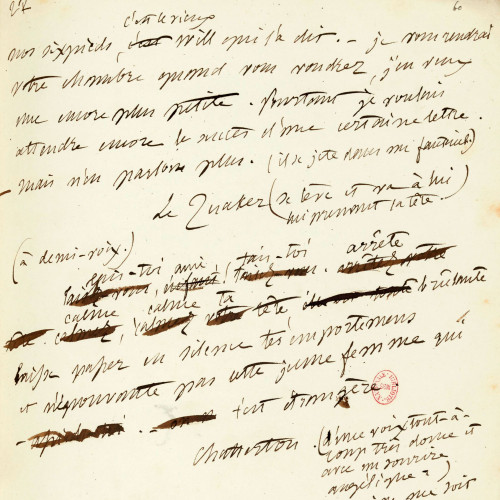 60
c'est le vieux
nos six pieds, Will qui l'a dit. — je vous rendrai
votre chambre quand vous voudrez, j'en veux
une encore plus petite. Pourtant je voulais
attendre encore le succès d'une certaine lettre.
mais n'en parlons plus. (il se jete dans un fauteuil.)
Le Quaker (se lève et va à lui
lui prenant la tête.)
(à demi-voix.)
tais-toi ami, tais-toi arrête
calme, calme ta
tête brûlante
laisse passer en silence tes emportemens
et n'épouvante pas cette jeune femme qui
t'est étrangère
Chatterton (d'une voix tout-à-
coup très douce et
avec un sourire
angélique.)